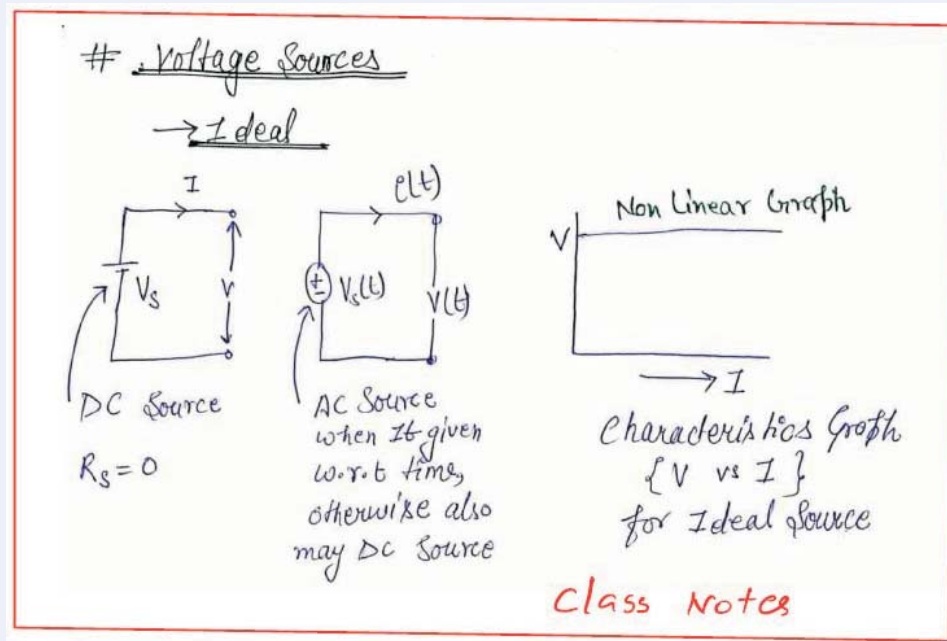 # Voltage Sources
→ Ideal
I
V_s
V
DC Source
R_s = 0
e(t)
+
-
V_s(t)
V(t)
AC Source
when It given
w.r.t time,
otherwise also
may DC Source
Non Linear Graph
V
→ I
Characteristics Graph
{V vs I}
for Ideal Source
Class Notes